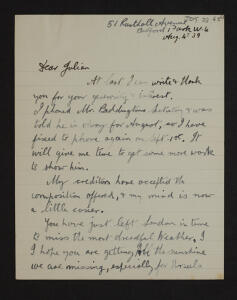 51 Rusthall Avenue
Bedford Park W4
Aug. 4 39
Dear Julian
At last I can write & thank
you for your generosity & interest.
I phoned Mr. Beddington's secretary & was
told he is away for August, so I have
fixed to phone again on Sept 1st. It
will give me time to get some more work
to show him.
My creditors have accepted the
composition offered, & my mind is now
a little easier.
You have just left London in time
to miss the most dreadful weather, &
I hope you are getting all the sunshine
we are missing, especially for